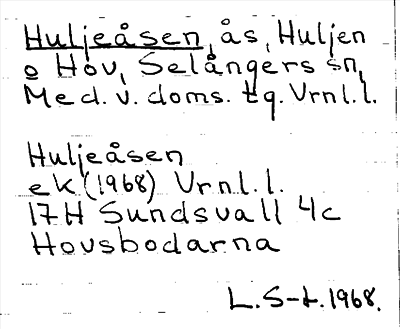 Huljeåsen, ås, Huljen
o Hov, Selångers sn,
Med. v. doms. tg. Vrnl.l.
Huljeåsen
ek (1968) Vrnl.l.
17H Sundsvall 4c
Hovsbodarna
L.S-t. 1968.